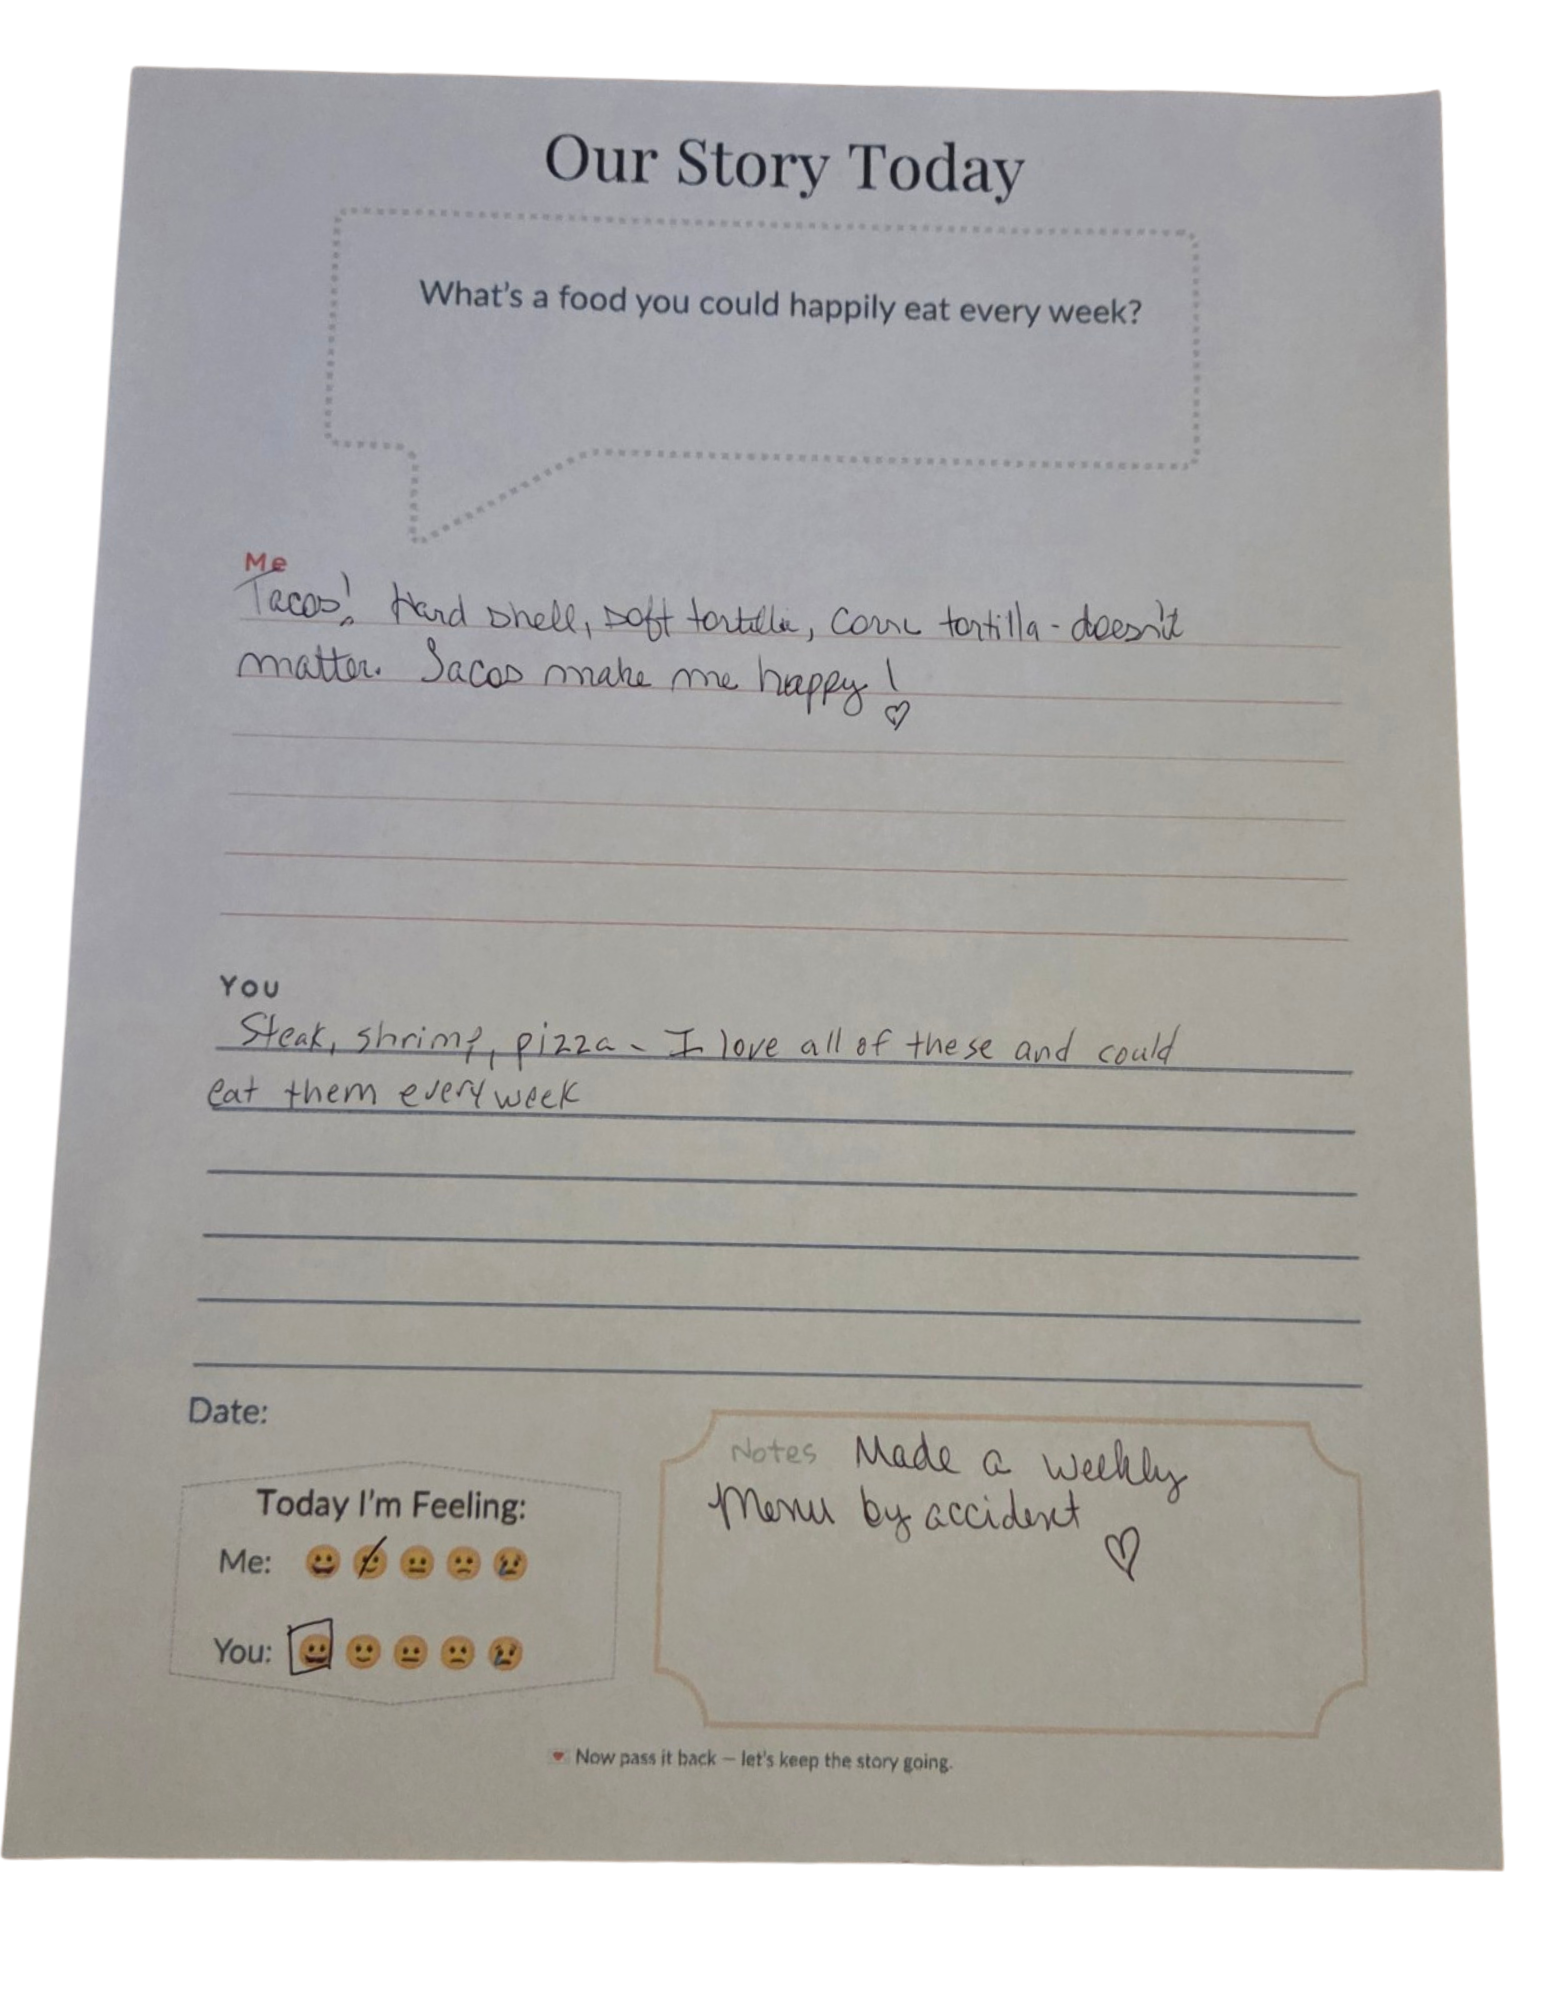 Our Story Today
What's a food you could happily eat every week?
Me
Tacos! Hard shell, soft tortilla, corn tortilla - doesn't
matter. Tacos make me happy! ♡
You
Steak, shrimp, pizza - I love all of these and could
eat them every week
Date:
Today I'm Feeling:
Me: 😀 🙂 😐 🙁 😢
You: 😀 🙂 😐 🙁 😢
Notes Made a weekly
Menu by accident ♡
♥ Now pass it back — let's keep the story going.